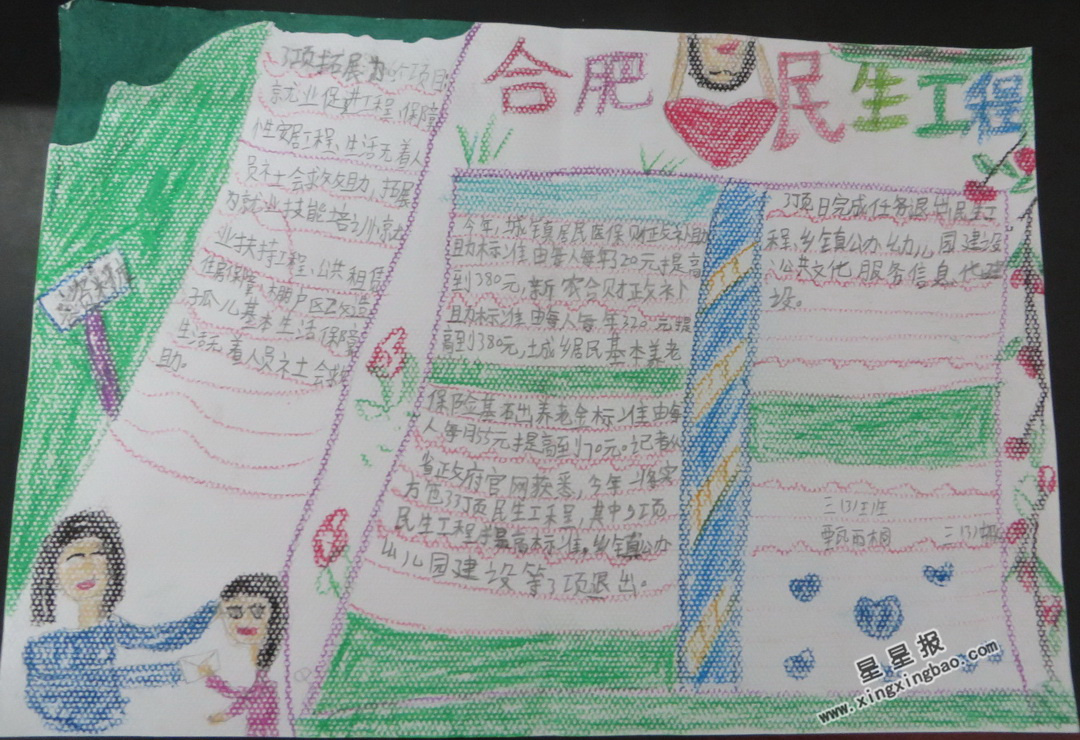 合肥民生工程
3项拓展为6个项目
就业促进工程、保障
性安居工程、生活无着人
员社会救助，拓展
为就业技能培训、就
业扶持工程、公共租赁
住房保障、棚户区改造
孤儿基本生活保障
生活无着人员社会救
助。
今年，城镇居民医保财政补助
助标准由每人每年320元提高
到380元，新农合财政补
助标准由每人每年320元提
高到380元，城乡居民基本养老
保险基础养老金标准由每
人每月55元提高到70元。记者从
省政府官网获悉，今年将实
方色33项民生工程，其中9项
民生工程提高标准，乡镇公办
幼儿园建设等3项退出。
3项目完成任务退出民生工
程，乡镇公办幼儿园建设
公共文化服务信息化建
设。
三(3)班
甄雨桐
星星报
www.xingxingbao.com